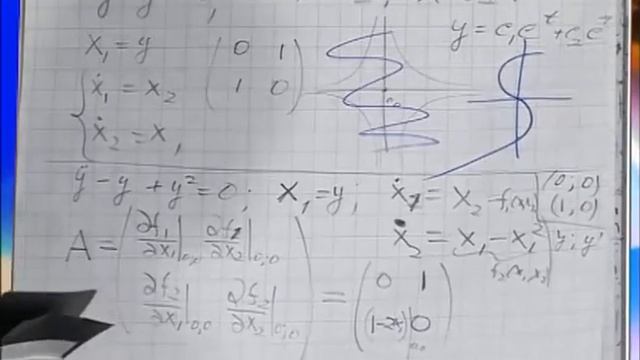 x₁ = y
(0 1
1 0)
y = c₁e^t + c₂e^-t
ẋ₁ = x₂
ẋ₂ = x₁
ÿ - y + y² = 0; x₁ = y; ẋ₁ = x₂ - f₁(x₁x₂) (0; 0)
(1, 0)
ẋ₂ = x₁ - x₁² y; y'
f₂(x₁, x₂)
A = (∂f₁/∂x₁|₀,₀ ∂f₁/∂x₂|₀;₀
∂f₂/∂x₁|₀,₀ ∂f₂/∂x₂|₀;₀) = (0 1
(1-2x₁) 0)|₀,₀